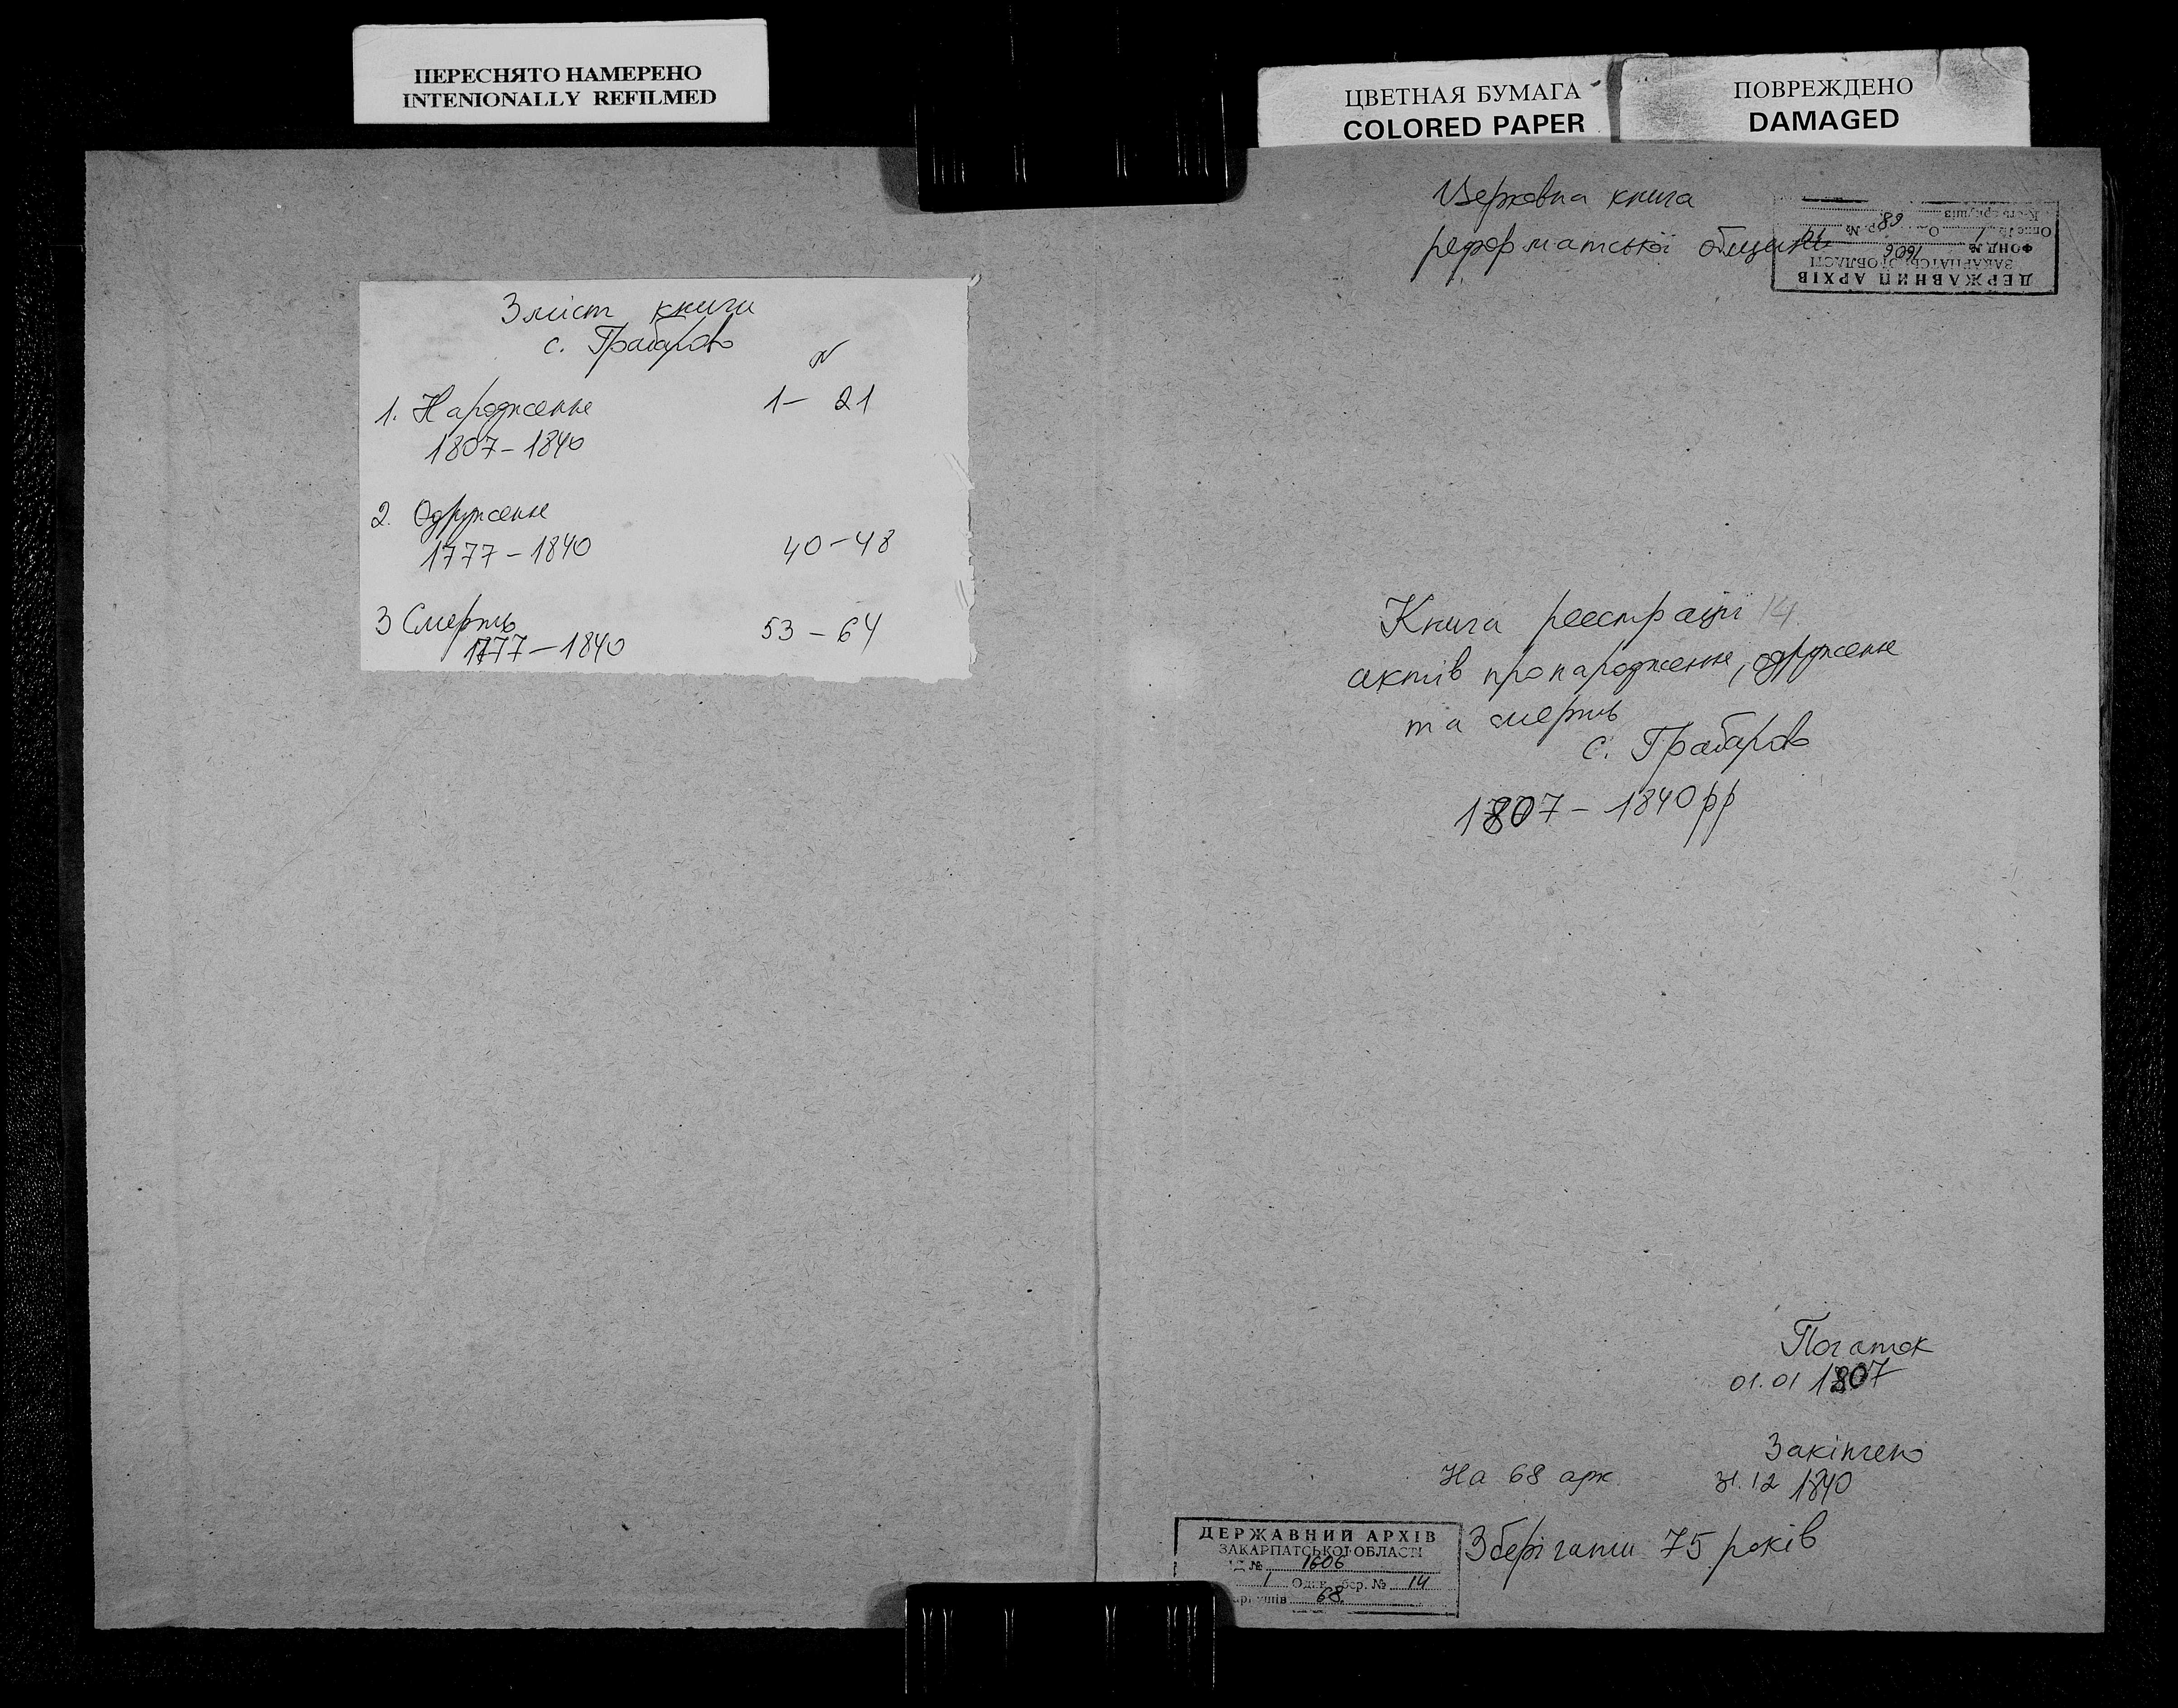 ПЕРЕСНЯТО НАМЕРЕНО
INTENIONALLY REFILMED
ЦВЕТНАЯ БУМАГА
COLORED PAPER
ПОВРЕЖДЕНО
DAMAGED
Зміст книги
с. Грабарово
N
1. Народження 1 – 21
1807 – 1840
2. Одруження
1777 – 1840 40 – 48
3 Смерть 53 – 64
1777 – 1840
Церковна книга
реформатської общини
ДЕРЖАВНИЙ АРХІВ
ЗАКАРПАТСЬКОЇ ОБЛАСТІ
ФОНД № 1606
Опис № 1
К-сть аркушів
Книга реєстрації 14
актів про народження, одруження
та смерть
с. Грабарово
1807 – 1840 рр
Початок
01.01 1807
Закінчено
На 68 арк. 31.12 1840
Зберігати 75 років
ДЕРЖАВНИЙ АРХІВ
ЗАКАРПАТСЬКОЇ ОБЛАСТІ
Д № 1606
1 Один. збер. № 14
аркушів 68